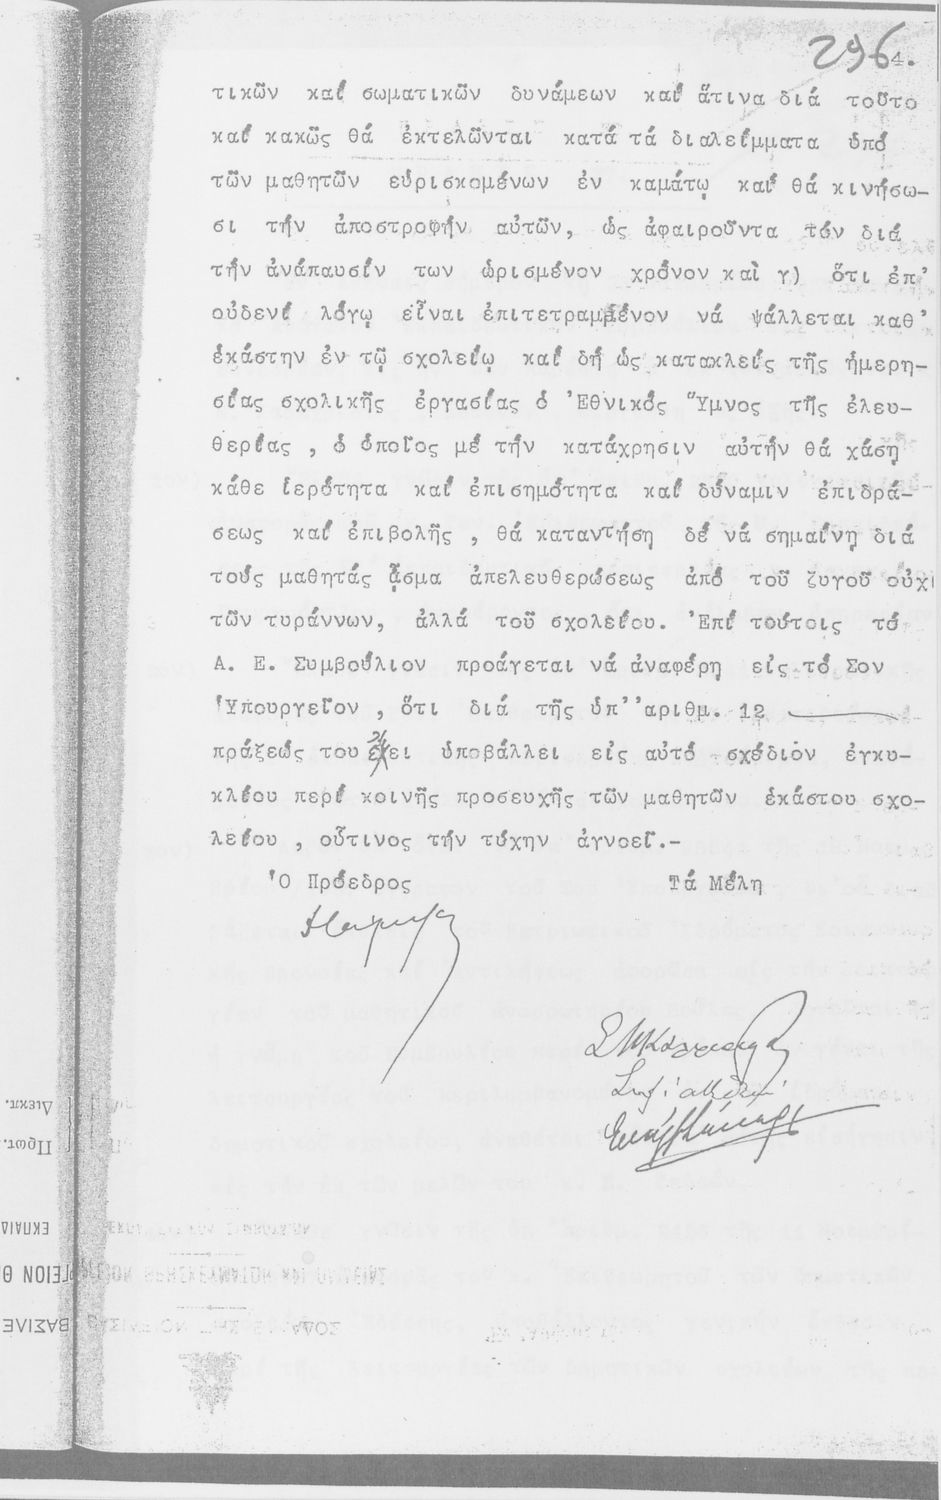 296 4.
τικῶν καί σωματικῶν δυνάμεων καί ἅτινα διά τοῦτο
καί κακῶς θά ἐκτελῶνται κατά τά διαλείμματα ὑπό
τῶν μαθητῶν εὑρισκομένων ἐν καμάτῳ καί θά κινήσω-
σι τήν ἀποστροφήν αὐτῶν, ὡς ἀφαιροῦντα τόν διά
τήν ἀνάπαυσίν των ὡρισμένον χρόνον καὶ γ) ὅτι ἐπ'
οὐδενί λόγῳ εἶναι ἐπιτετραμμένον νά ψάλλεται καθ'
ἑκάστην ἐν τῷ σχολείῳ καί δή ὡς κατακλείς τῆς ἡμερη-
σίας σχολικῆς ἐργασίας ὁ Ἐθνικός Ὕμνος τῆς ἐλευ-
θερίας , ὁ ὁποῖος μέ τήν κατάχρησιν αὐτήν θά χάσῃ
κάθε ἱερότητα καί ἐπισημότητα καί δύναμιν ἐπιδρά-
σεως καί ἐπιβολῆς , θά καταντήσῃ δέ νά σημαίνῃ διά
τούς μαθητάς ᾆσμα ἀπελευθερώσεως ἀπό τοῦ ζυγοῦ οὐχί
τῶν τυράννων, ἀλλά τοῦ σχολείου. Ἐπί τούτοις τό
Α. Ε. Συμβούλιον προάγεται νά ἀναφέρῃ εἰς τό Σον
Ὑπουργεῖον , ὅτι διά τῆς ὑπ''αριθμ. 12
πράξεώς του ἔχει ὑποβάλλει εἰς αὐτό σχέδιον ἐγκυ-
κλίου περί κοινῆς προσευχῆς τῶν μαθητῶν ἑκάστου σχο-
λείου , οὗτινος τήν τύχην ἀγνοεῖ.-
Ὁ Πρόεδρος Τά Μέλη